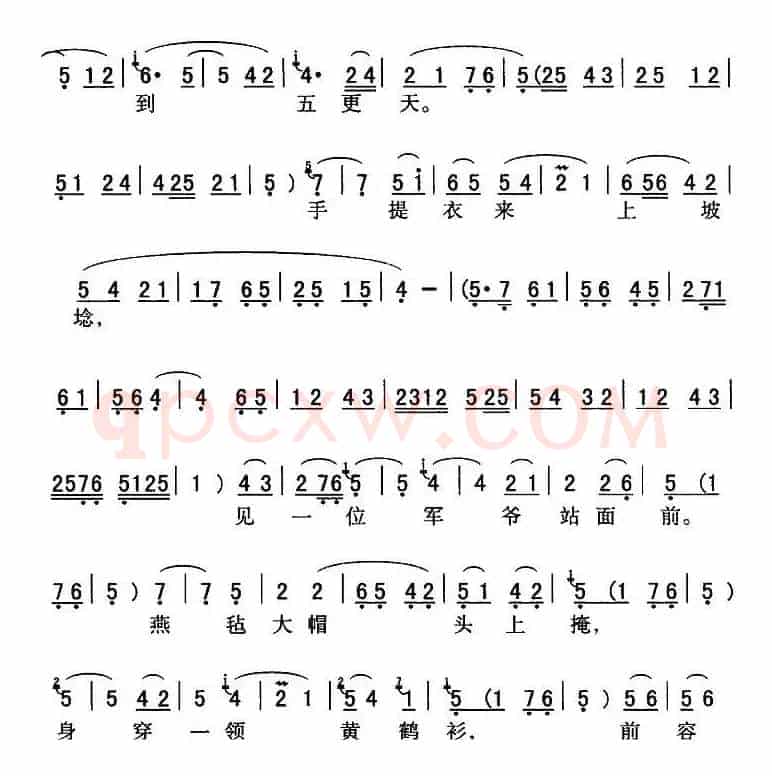 5 12 | 6· 5 | 5 42 | 4· 24 | 2 1 76 | 5(25 43 | 25 12 |
到 五更 天。
51 24 | 425 21 | 5 ) 7 | 7 5i | 65 54 | 2 1 | 656 42 |
手 提衣来 上坡
5 4 21 | 17 65 | 25 15 | 4 – | (5·7 61 | 56 45 | 271
埝,
61 | 564 | 4 65 | 12 43 | 2312 525 | 54 32 | 12 43 |
qpcxw.COM
2576 5125 | 1 ) 43 | 2765 | 5 4 | 4 21 | 2 26 | 5 (1
见一位军爷站面前。
76 | 5 ) 7 | 7 5 | 2 2 | 65 42 | 51 42 | 5 (1 76 | 5 )
燕毡大帽 头上掩,
5 | 5 42 | 5 4 | 2 1 | 54 1 | 5 (1 76 | 5 ) 56 | 5 6
身穿一领黄鹤衫, 前容